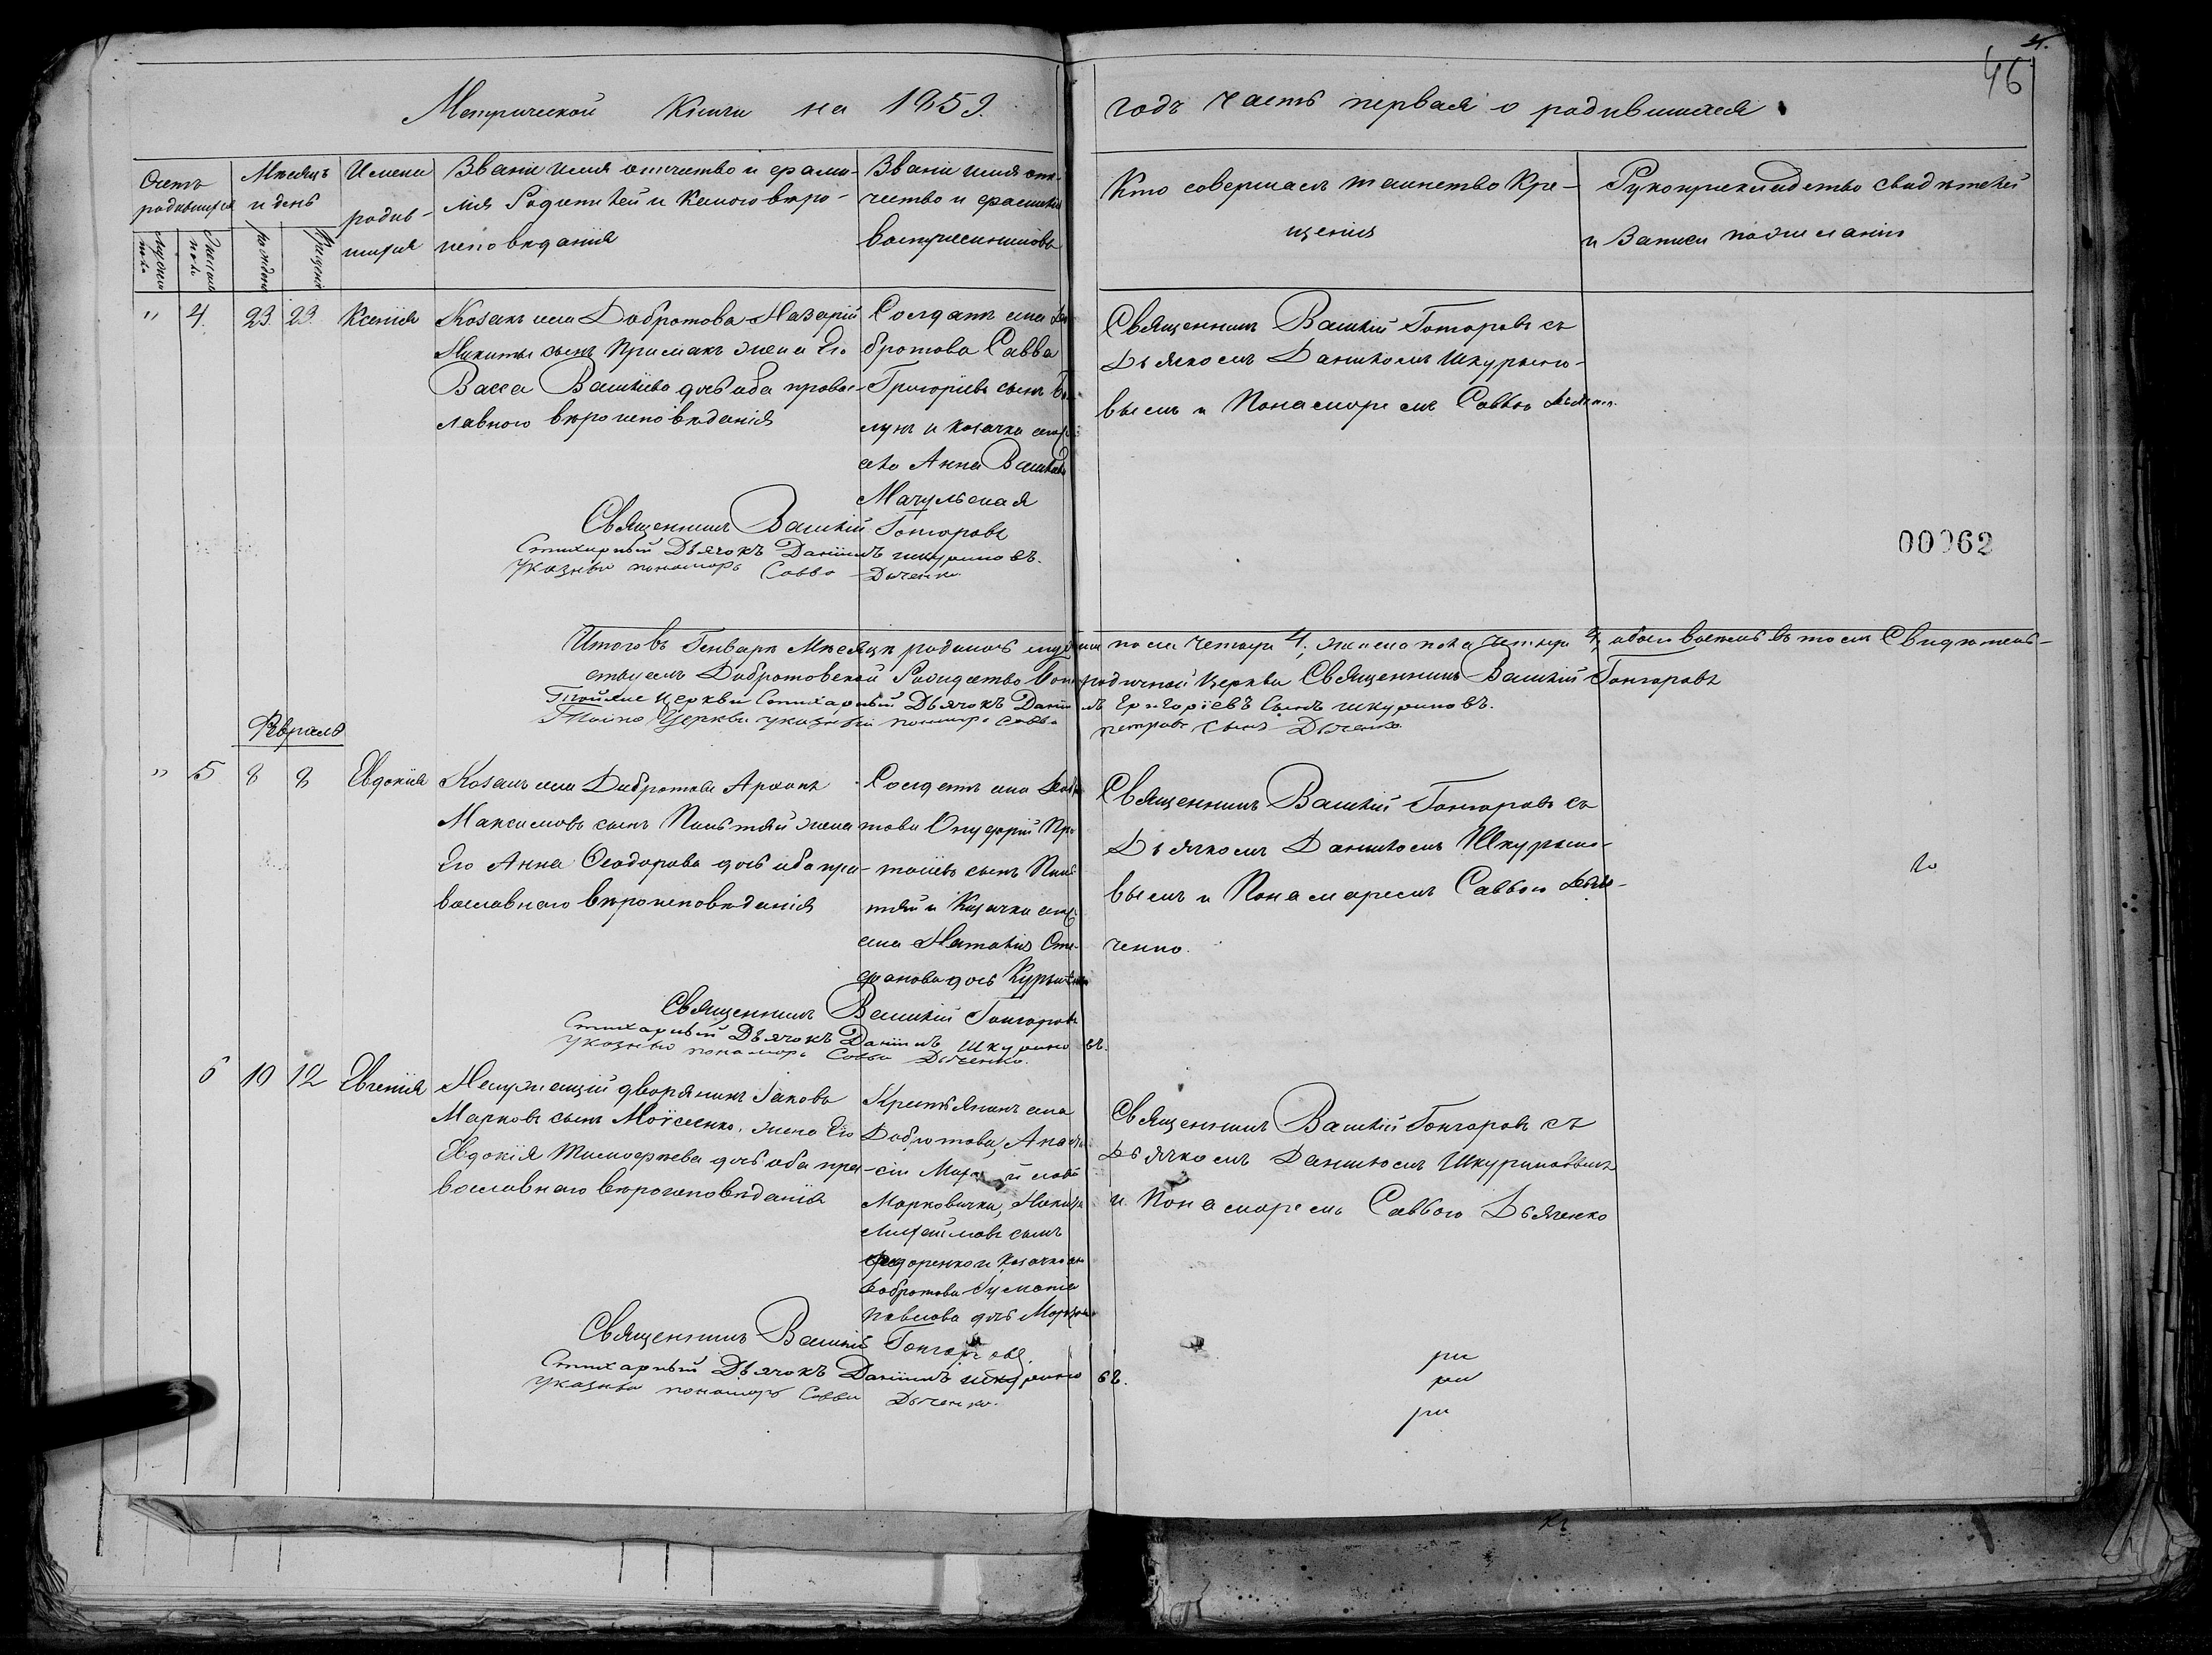 4.
46
Метрической Книги на 1859. годъ часть первая о родившихся
Счетъ родившихся
Мѣсяцъ и день
Имена родив-
шихся
Звание имя отчество и фами-
лия Родителей и какого вѣро-
исповѣданія
Звание имя отче-
чество и фамилия
восприемниковъ
Кто совершалъ таинство Кре-
щенія
Рукоприкладство свидѣтелей
и Записи по желанію
Мужеска пола
Женска пола
рожденія
Крещенія
" 4. 23. 23. Ксенія
Козакъ села Добротова Назарій
Никиты сынъ Примакъ жена Его
Васса Василіева дочь оба правос-
лавного вѣроисповѣданія
Солдатъ села До
бротова Савва
Григоріевъ сынъ
и козачка
села Анна Василіева
Мачульская
Священникъ Василій Гончаровъ съ
Дьячкомъ Даніиломъ Шкурино-
вымъ и Понамаремъ Саввою
Священникъ Василій Гончаровъ
Стихарный Дьячокъ Даніилъ шкуриновъ.
Указный понамарь Савва Дяченко.
00062
Итого въ Генварѣ Мѣсяцѣ родилось мужска пола четыри 4, женска пола четыри 4, обоего восемь въ томъ Свидѣтель-
ствуемъ Добротовской Рождество Богородичной Церкви Священникъ Василій Гончаровъ
Тойже Церкви Стихарный Дьячокъ Даніилъ Григоріевъ Сынъ шкуриновъ.
Тойже Церкви указный понамарь Савва петровъ сынъ Дяченко.
Февраль
" 5 8 8 Евдокія
Козакъ села Добротова Архипъ
Максимовъ сынъ жена
Его Анна Ѳеодорова дочь оба пра-
вославнаго вѣроисповѣданія
Солдатъ села Добро
това Онуфрій
сынъ
и Козачка
села Наталія Сте-
фанова дочь
Священникъ Василій Гончаровъ съ
Дьячкомъ Даніиломъ Шкурино-
вымъ и Понамаремъ Саввою Дья-
ченко.
Священникъ Василій Гончаровъ
Стихарный Дьячокъ Даніилъ Шкуриновъ.
Указный понамарь Савва Дяченко.
6 10 12 Евгенія
Неслужащій дворянинъ Іаковъ
Марковъ сынъ Моисеенко, жена Его
Евдокія Тимофѣева дочь оба пра-
вославнаго вѣроисповѣданія
Крестьянинъ села
Добротова,
Марковички, Никита
Михайловъ сынъ
Федоренко и козачка села
Добротова
Павлова дочь
Священникъ Василій Гончаровъ съ
Дьячкомъ Даніиломъ Шкуриновымъ
и Понамаремъ Саввою Дьяченко
Священникъ Василій Гончаровъ.
Стихарный Дьячокъ Даніилъ шкуриновъ.
Указный понамарь Савва Дяченко.
ри
ри
ри